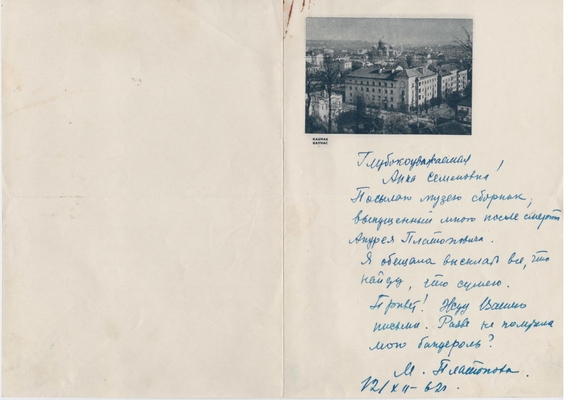 KAUNAS
КАУНАС
Глубокоуважаемая
Анна Семеновна!
Посылаю музею сборник,
выпущенный мною после смерти
Андрея Платоновича.
Я обещала высылать все, что
найду, что сумею.
Привет! Жду Вашего
письма. Разве не получили
мою бандероль?
М. Платонова.
12/XII-62г.